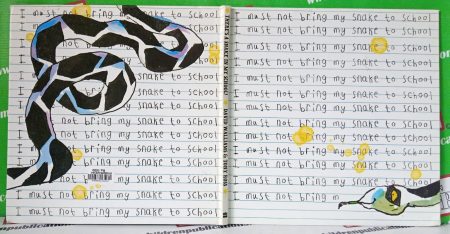 I must not bring my snake to school
I to school
I must school
I school
I snake to school
I my snake to school
I bring my snake to school
I not bring my snake to school
I not bring my snake to school
I must not bring my snake to school
must not bring my snake to school
must not bring my snake to school
I must not bring my snake to school
I must not bring my snake to school
THERE'S A SNAKE IN MY SCHOOL! DAVID WALLIAMS & TONY ROSS
I must not bring my snake to school
I must not bring my snake to school
I must not bring my snake to school
I must not bring my snake to school
I must not bring my snake to school
I must not bring my snake to school
I must not bring my snake to school
I must not bring my snake to school
I must not bring my snake to school
I must not bring my snake to school
I must not bring my snake to school
I must not bring my snake to school
I must not bring m